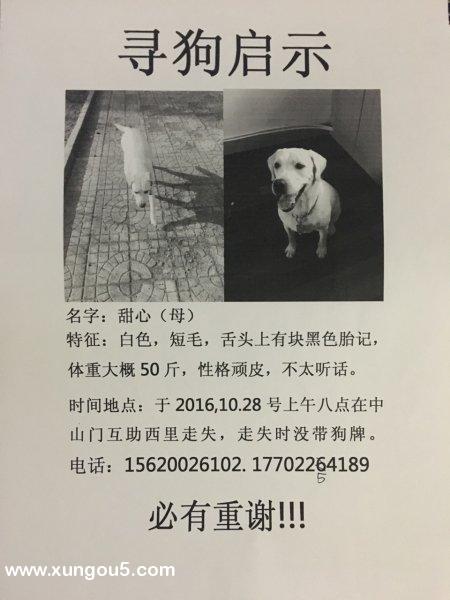 寻狗启示
名字：甜心（母）
特征：白色，短毛，舌头上有块黑色胎记，
体重大概 50 斤，性格顽皮，不太听话。
时间地点：于 2016,10.28 号上午八点在中
山门互助西里走失，走失时没带狗牌。
电话：15620026102. 17702264189
5
必有重谢!!!
www.xungou5.com